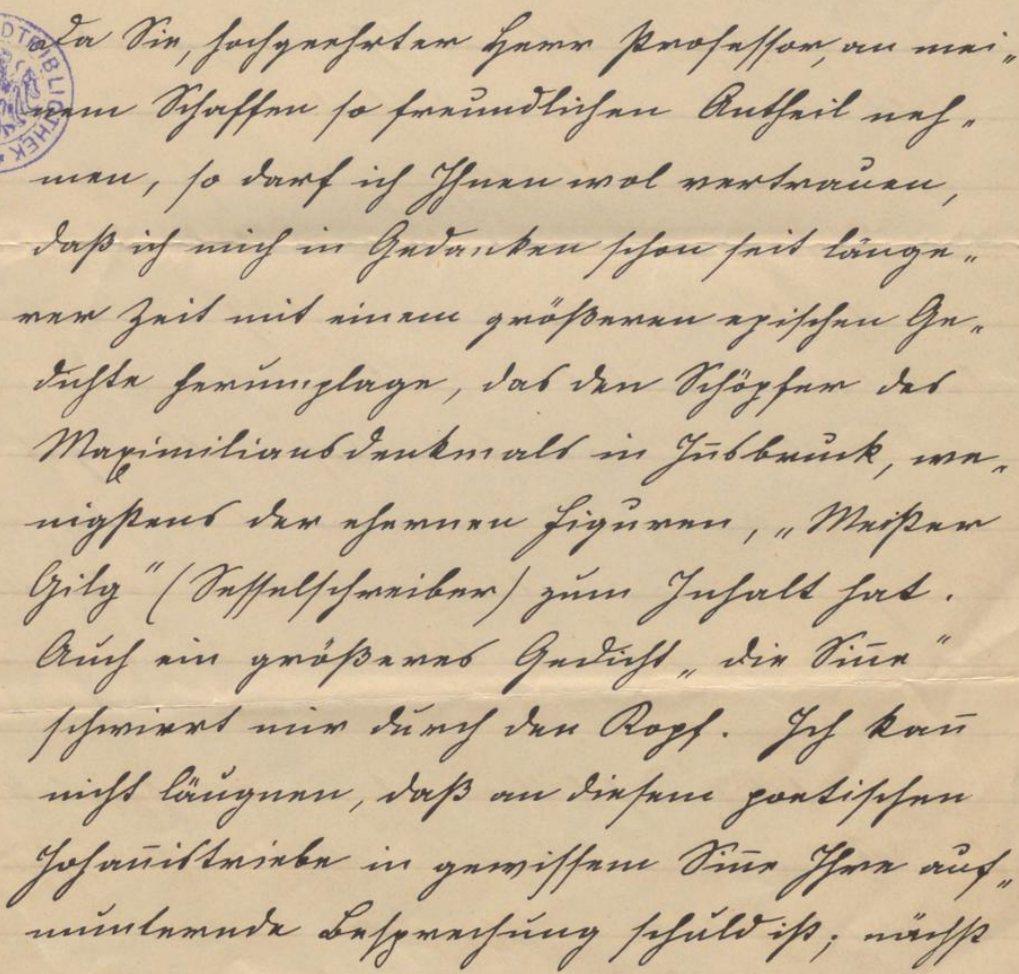 Da Sie, hochgeehrter Herr Professor, an mei„
nem Schaffen so freundlichen Antheil neh„
men, so darf ich Ihnen wol vertrauen,
daß ich mich in Gedanken schon seit länge„
rer Zeit mit einem größeren epischen Ge„
dichte herumplage, das den Schöpfer des
Maximiliansdenkmals in Iñsbruck, we„
nigstens der ehernen Figuren, „Meister
Gilg" (Sesselschreiber) zum Inhalt hat.
Auch ein größeres Gedicht „die Siñe"
schwirrt mir durch den Kopf. Ich kañ
nicht läugnen, daß an diesem poetischen
Johañistriebe in gewissem Siñe Ihre auf„
munternde Besprechung schuld ist; nächst